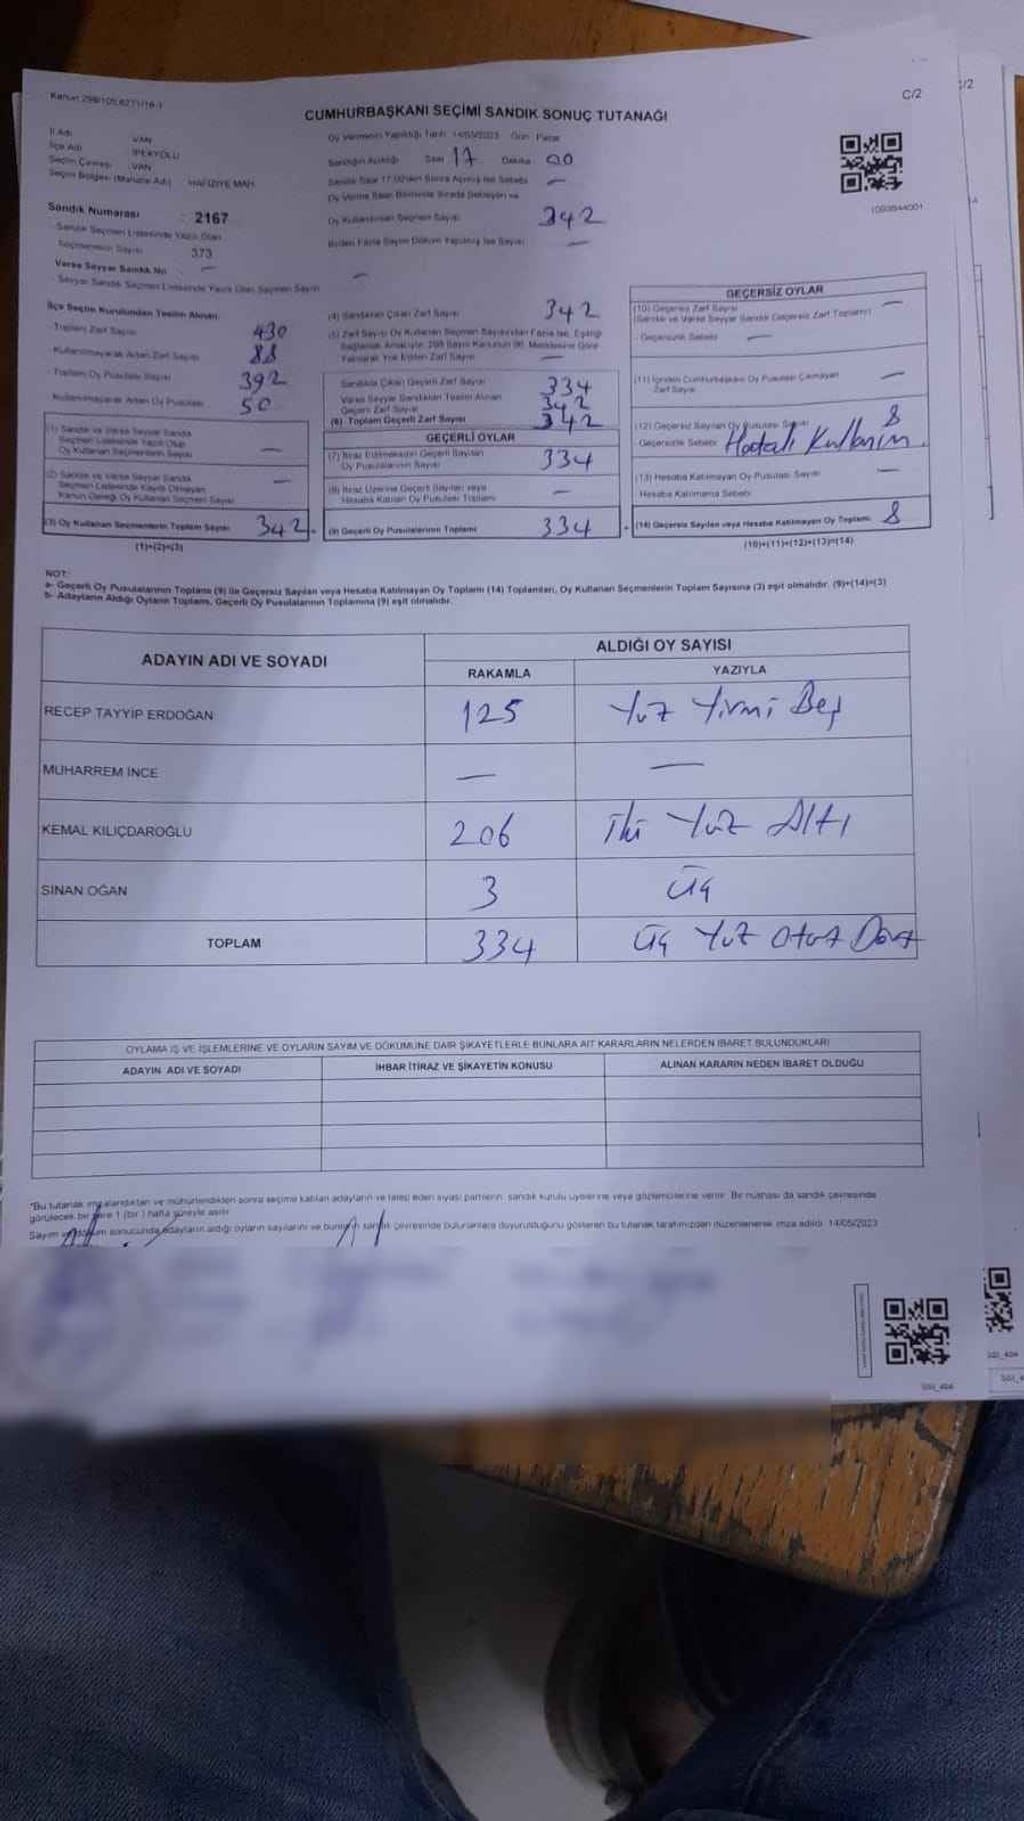 Kanun 298/105,6271/16-1
C/2
CUMHURBAŞKANI SEÇİMİ SANDIK SONUÇ TUTANAĞI
İl Adı VAN
İlçe Adı İPEKYOLU
Seçim Çevresi VAN
Seçim Bölgesi (Mahalle Adı) HAFIZİYE MAH.
Oy Vermenin Yapıldığı Tarih 14/05/2023 Gün Pazar
Sandığın Açıldığı Saat 17 Dakika 00
Sandık Saat 17:00'den Sonra Açılmış İse Sebebi —
Oy Verme Saati Bitiminde Sırada Bekleyen ve
Oy Kullandırılan Seçmen Sayısı 342
Birden Fazla Sayım Döküm Yapılmış İse Sayısı —
Sandık Numarası : 2167
Sandık Seçmen Listesinde Yazılı Olan
Seçmenlerin Sayısı 373
Varsa Seyyar Sandık No —
Seyyar Sandık Seçmen Listesinde Yazılı Olan Seçmen Sayısı —
İlçe Seçim Kurulundan Teslim Alınan
Toplam Zarf Sayısı 430
Kullanılmayarak Artan Zarf Sayısı 88
Toplam Oy Pusulası Sayısı 392
Kullanılmayarak Artan Oy Pusulası 50
(1) Sandık ve Varsa Seyyar Sandık
Seçmen Listesinde Yazılı Olup
Oy Kullanan Seçmenlerin Sayısı —
(2) Sandık ve Varsa Seyyar Sandık
Seçmen Listesinde Kayıtlı Olmayan
Kanun Gereği Oy Kullanan Seçmen Sayısı —
(3) Oy Kullanan Seçmenlerin Toplam Sayısı 342
(1)+(2)=(3)
(4) Sandıktan Çıkan Zarf Sayısı 342
(5) Zarf Sayısı Oy Kullanan Seçmen Sayısından Fazla İse, Eşitliği
Sağlamak Amacıyla, 298 Sayılı Kanunun 98. Maddesine Göre
Yakılarak Yok Edilen Zarf Sayısı —
Sandıkta Çıkan Geçerli Zarf Sayısı 334
Varsa Seyyar Sandıktan Teslim Alınan
Geçerli Zarf Sayısı 342
(6) Toplam Geçerli Zarf Sayısı 342
GEÇERLİ OYLAR
(7) İtiraz Edilmeksizin Geçerli Sayılan
Oy Pusulalarının Sayısı 334
(8) İtiraz Üzerine Geçerli Sayılan veya
Hesaba Katılan Oy Pusulası Toplamı —
(9) Geçerli Oy Pusulalarının Toplamı 334
GEÇERSİZ OYLAR
(10) Geçersiz Zarf Sayısı —
(Sandık ve Varsa Seyyar Sandık Geçersiz Zarf Toplamı)
Geçersizlik Sebebi —
(11) İçinden Cumhurbaşkanı Oy Pusulası Çıkmayan
Zarf Sayısı —
(12) Geçersiz Sayılan Oy Pusulası Sayısı 8
Geçersizlik Sebebi Hatalı Kullanım.
(13) Hesaba Katılmayan Oy Pusulası Sayısı —
Hesaba Katılmama Sebebi
(14) Geçersiz Sayılan veya Hesaba Katılmayan Oy Toplamı 8
(10)+(11)+(12)+(13)=(14)
NOT:
a- Geçerli Oy Pusulalarının Toplamı (9) ile Geçersiz Sayılan veya Hesaba Katılmayan Oy Toplamı (14) Toplamları, Oy Kullanan Seçmenlerin Toplam Sayısına (3) eşit olmalıdır. (9)+(14)=(3)
b- Adayların Aldığı Oyların Toplamı, Geçerli Oy Pusulalarının Toplamına (9) eşit olmalıdır.
ADAYIN ADI VE SOYADI
ALDIĞI OY SAYISI
RAKAMLA YAZIYLA
RECEP TAYYİP ERDOĞAN 125 Yüz Yirmi Beş
MUHARREM İNCE — —
KEMAL KILIÇDAROĞLU 206 İki Yüz Altı
SİNAN OĞAN 3 Üç
TOPLAM 334 Üç Yüz Otuz Dört
OYLAMA İŞ VE İŞLEMLERİNE VE OYLARIN SAYIM VE DÖKÜMÜNE DAİR ŞİKAYETLERLE BUNLARA AİT KARARLARIN NELERDEN İBARET BULUNDUKLARI
ADAYIN ADI VE SOYADI
İHBAR İTİRAZ VE ŞİKAYETİN KONUSU
ALINAN KARARIN NEDEN İBARET OLDUĞU
*Bu tutanak imzalandıktan ve mühürlendikten sonra seçime katılan adayların ve talep eden siyasi partilerin, sandık kurulu üyelerine veya gözlemcilerine verilir. Bir nüshası da sandık çevresinde
görülecek bir yere 1 (bir) hafta süreyle asılır.
Sayım ve döküm sonucunda adayların aldığı oyların sayılarını ve bunların sandık çevresinde bulunanlara duyurulduğunu gösteren bu tutanak tarafımızdan düzenlenerek imza edildi. 14/05/2023